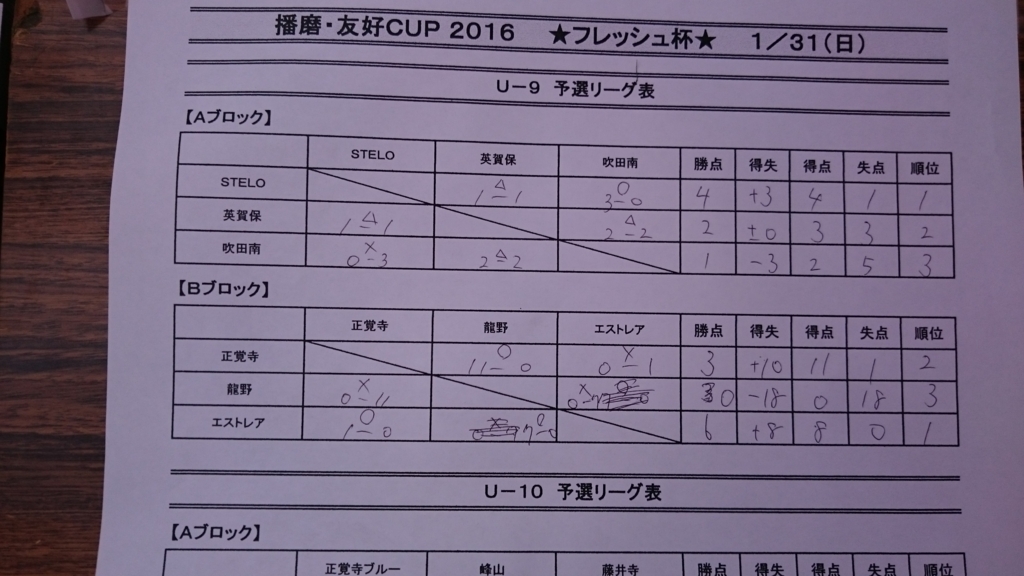 播磨・友好CUP 2016 ★フレッシュ杯★ 1／31(日)
U－9 予選リーグ表
【Aブロック】
STELO 英賀保 吹田南 勝点 得失 得点 失点 順位
STELO △ 1－1 ○ 3－0 4 +3 4 1 1
英賀保 △ 1－1 △ 2－2 2 ±0 3 3 2
吹田南 × 0－3 △ 2－2 1 -3 2 5 3
【Bブロック】
正覚寺 龍野 エストレア 勝点 得失 得点 失点 順位
正覚寺 ○ 11－0 × 0－1 3 +10 11 1 2
龍野 × 0－11 × 0－7 0 -18 0 18 3
エストレア ○ 1－0 ○ 7－0 6 +8 8 0 1
U－10 予選リーグ表
【Aブロック】
正覚寺ブルー 峰山 藤井寺 勝点 得失 得点 失点 順位